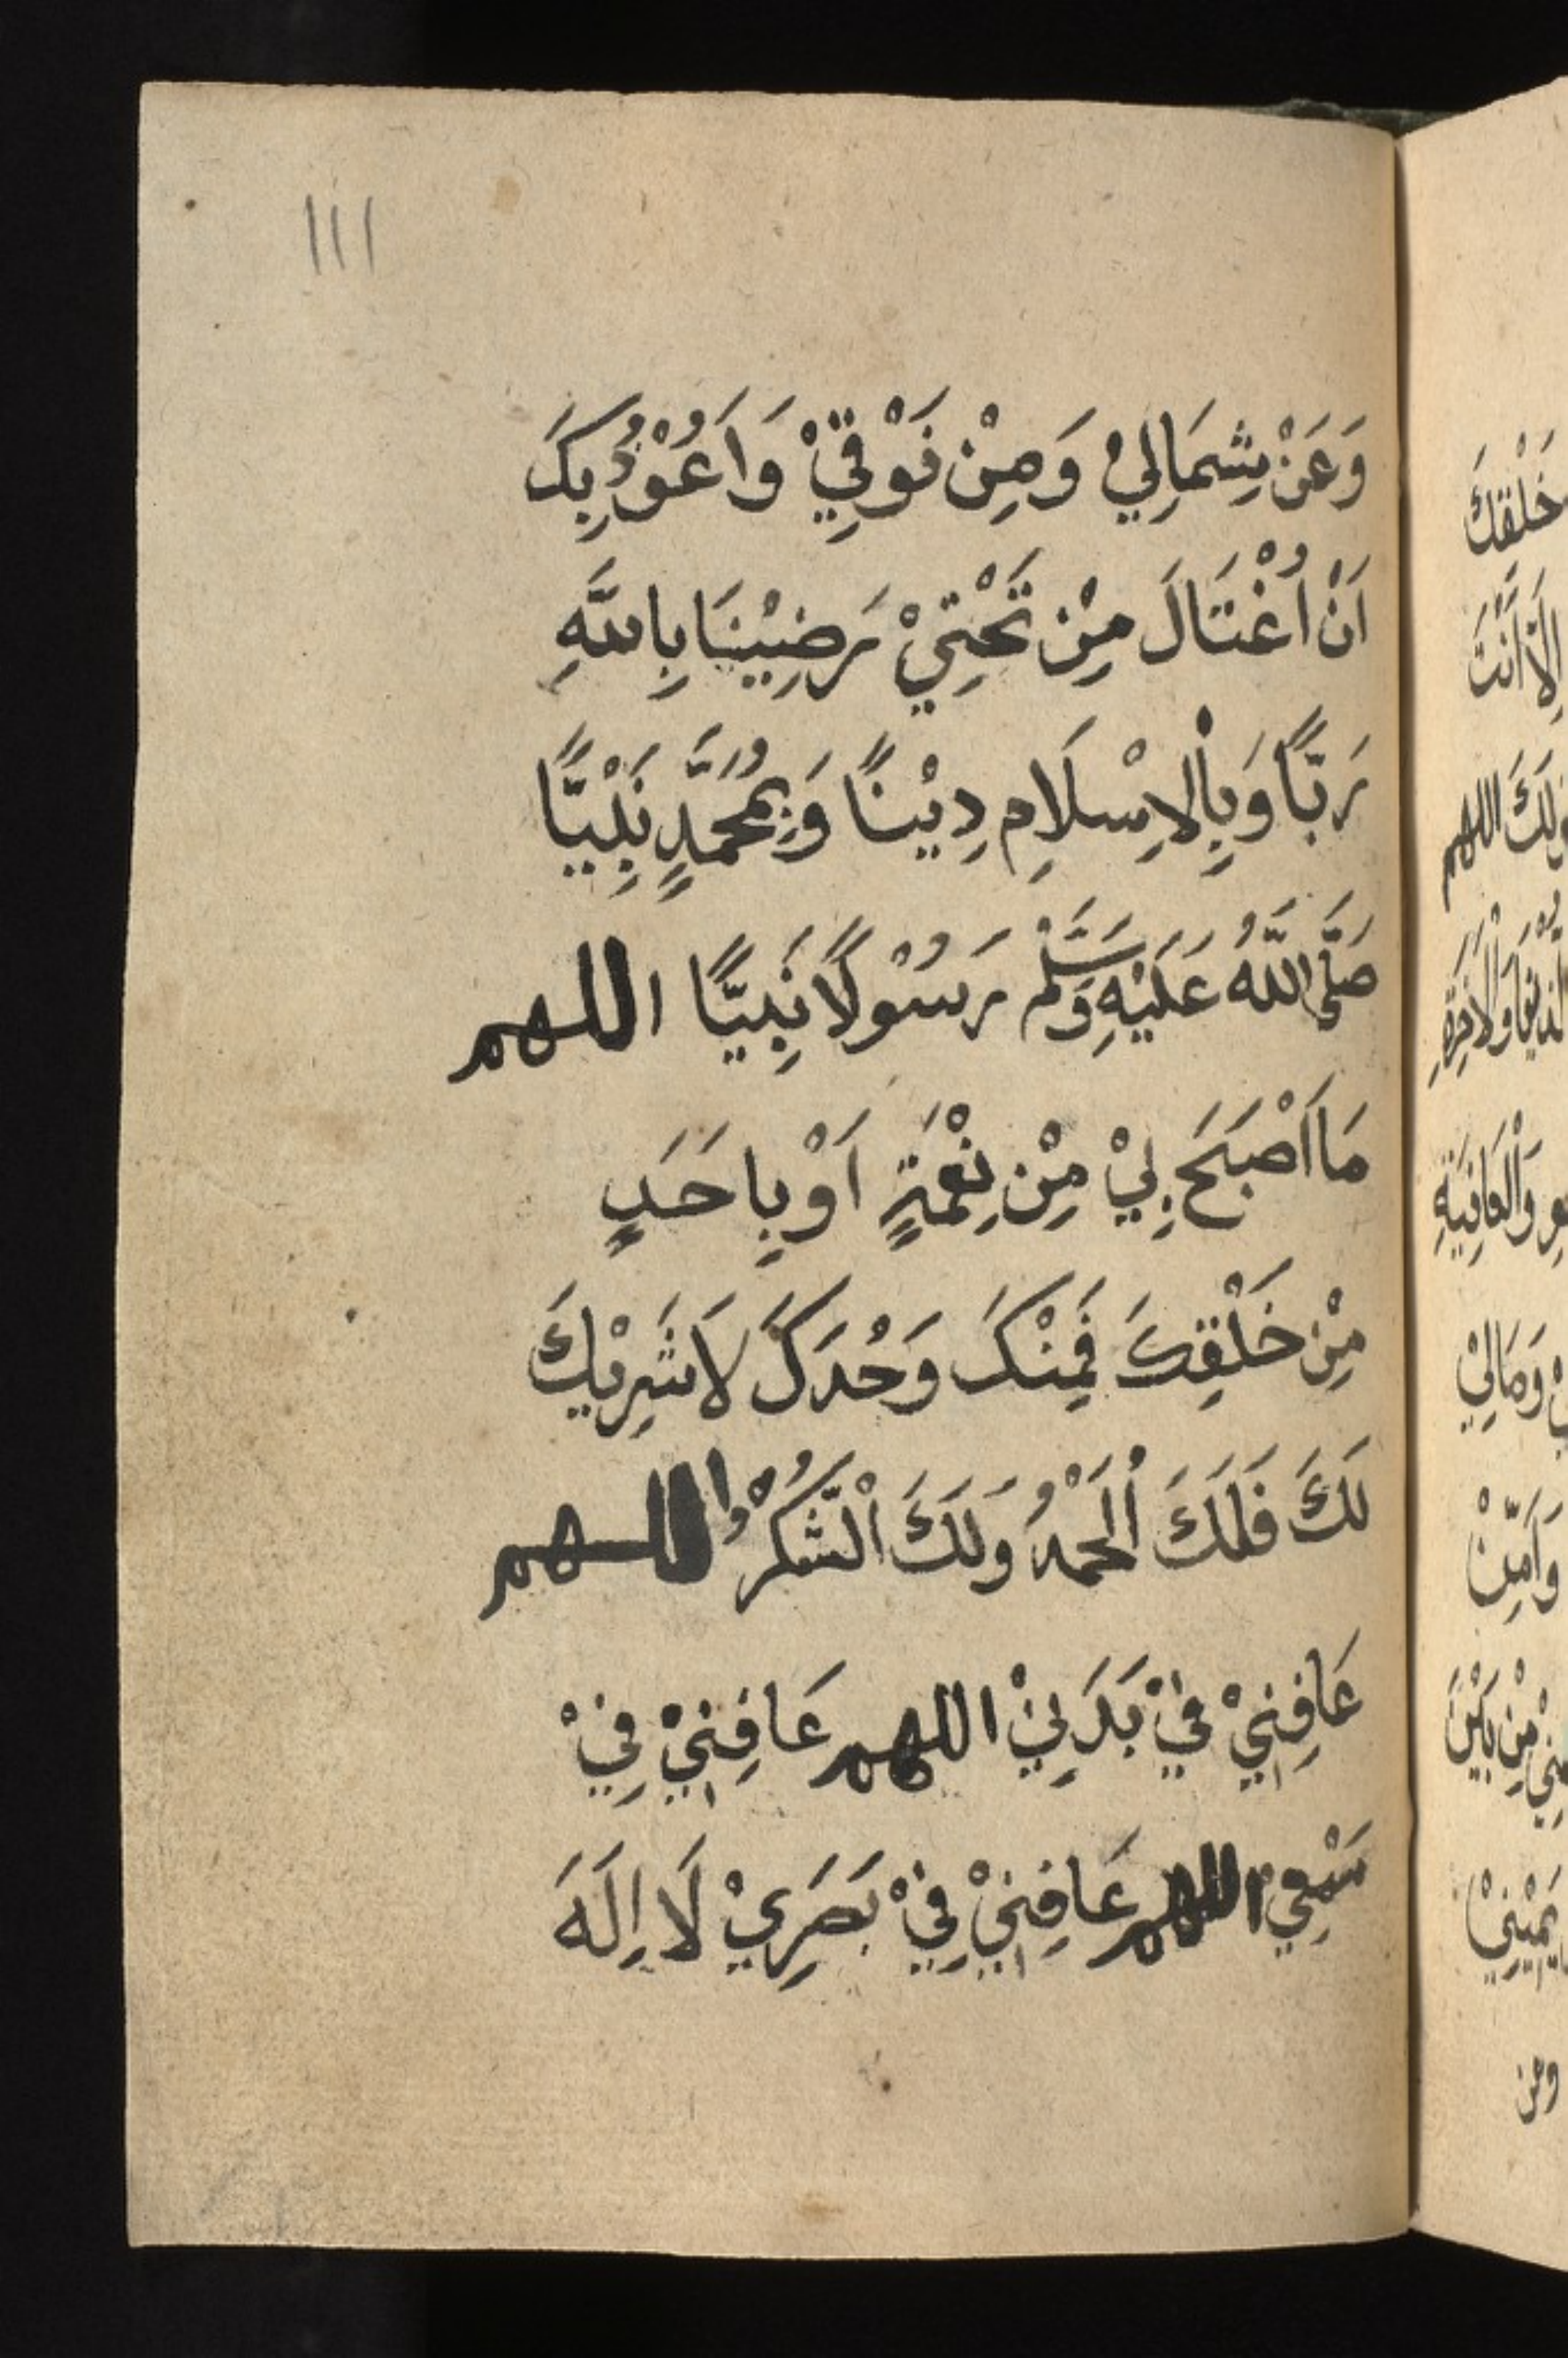 ١١١
وَعَنْ شِمَالِيْ وَمِنْ فَوْقِيْ وَاَعُوْذُ بِكَ
اَنْ اُغْتَالَ مِنْ تَحْتِيْ رَضِيْنَا بِاللّٰهِ
رَبًّا وَبِالْاِسْلَامِ دِيْنًا وَبِمُحَمَّدٍ نَبِيًّا
صَلَّى اللّٰهُ عَلَيْهِ وَسَلَّمْ رَسُوْلًا نَبِيًّا اللهم
مَا اَصْبَحَ بِيْ مِنْ نِعْمَةٍ اَوْ بِاَحَدٍ
مِنْ خَلْقِكَ فَمِنْكَ وَحْدَكَ لَا شَرِيْكَ
لَكَ فَلَكَ اْلحَمْدُ وَلَكَ اْلشُّكْرُ اللهم
عَافِنِيْ فِيْ بَدَنِيْ اللهم عَافِنِيْ فِيْ
سَمْعِيْ اللهم عَافِنِيْ فِيْ بَصَرِيْ لَا اِلَهَ
خَلْقِكَ
اِلَّا اَنْتَ
اللهم
وَالْعَافِيَةِ
وَمَالِيْ
مِنْ بَيْنِ
ومن